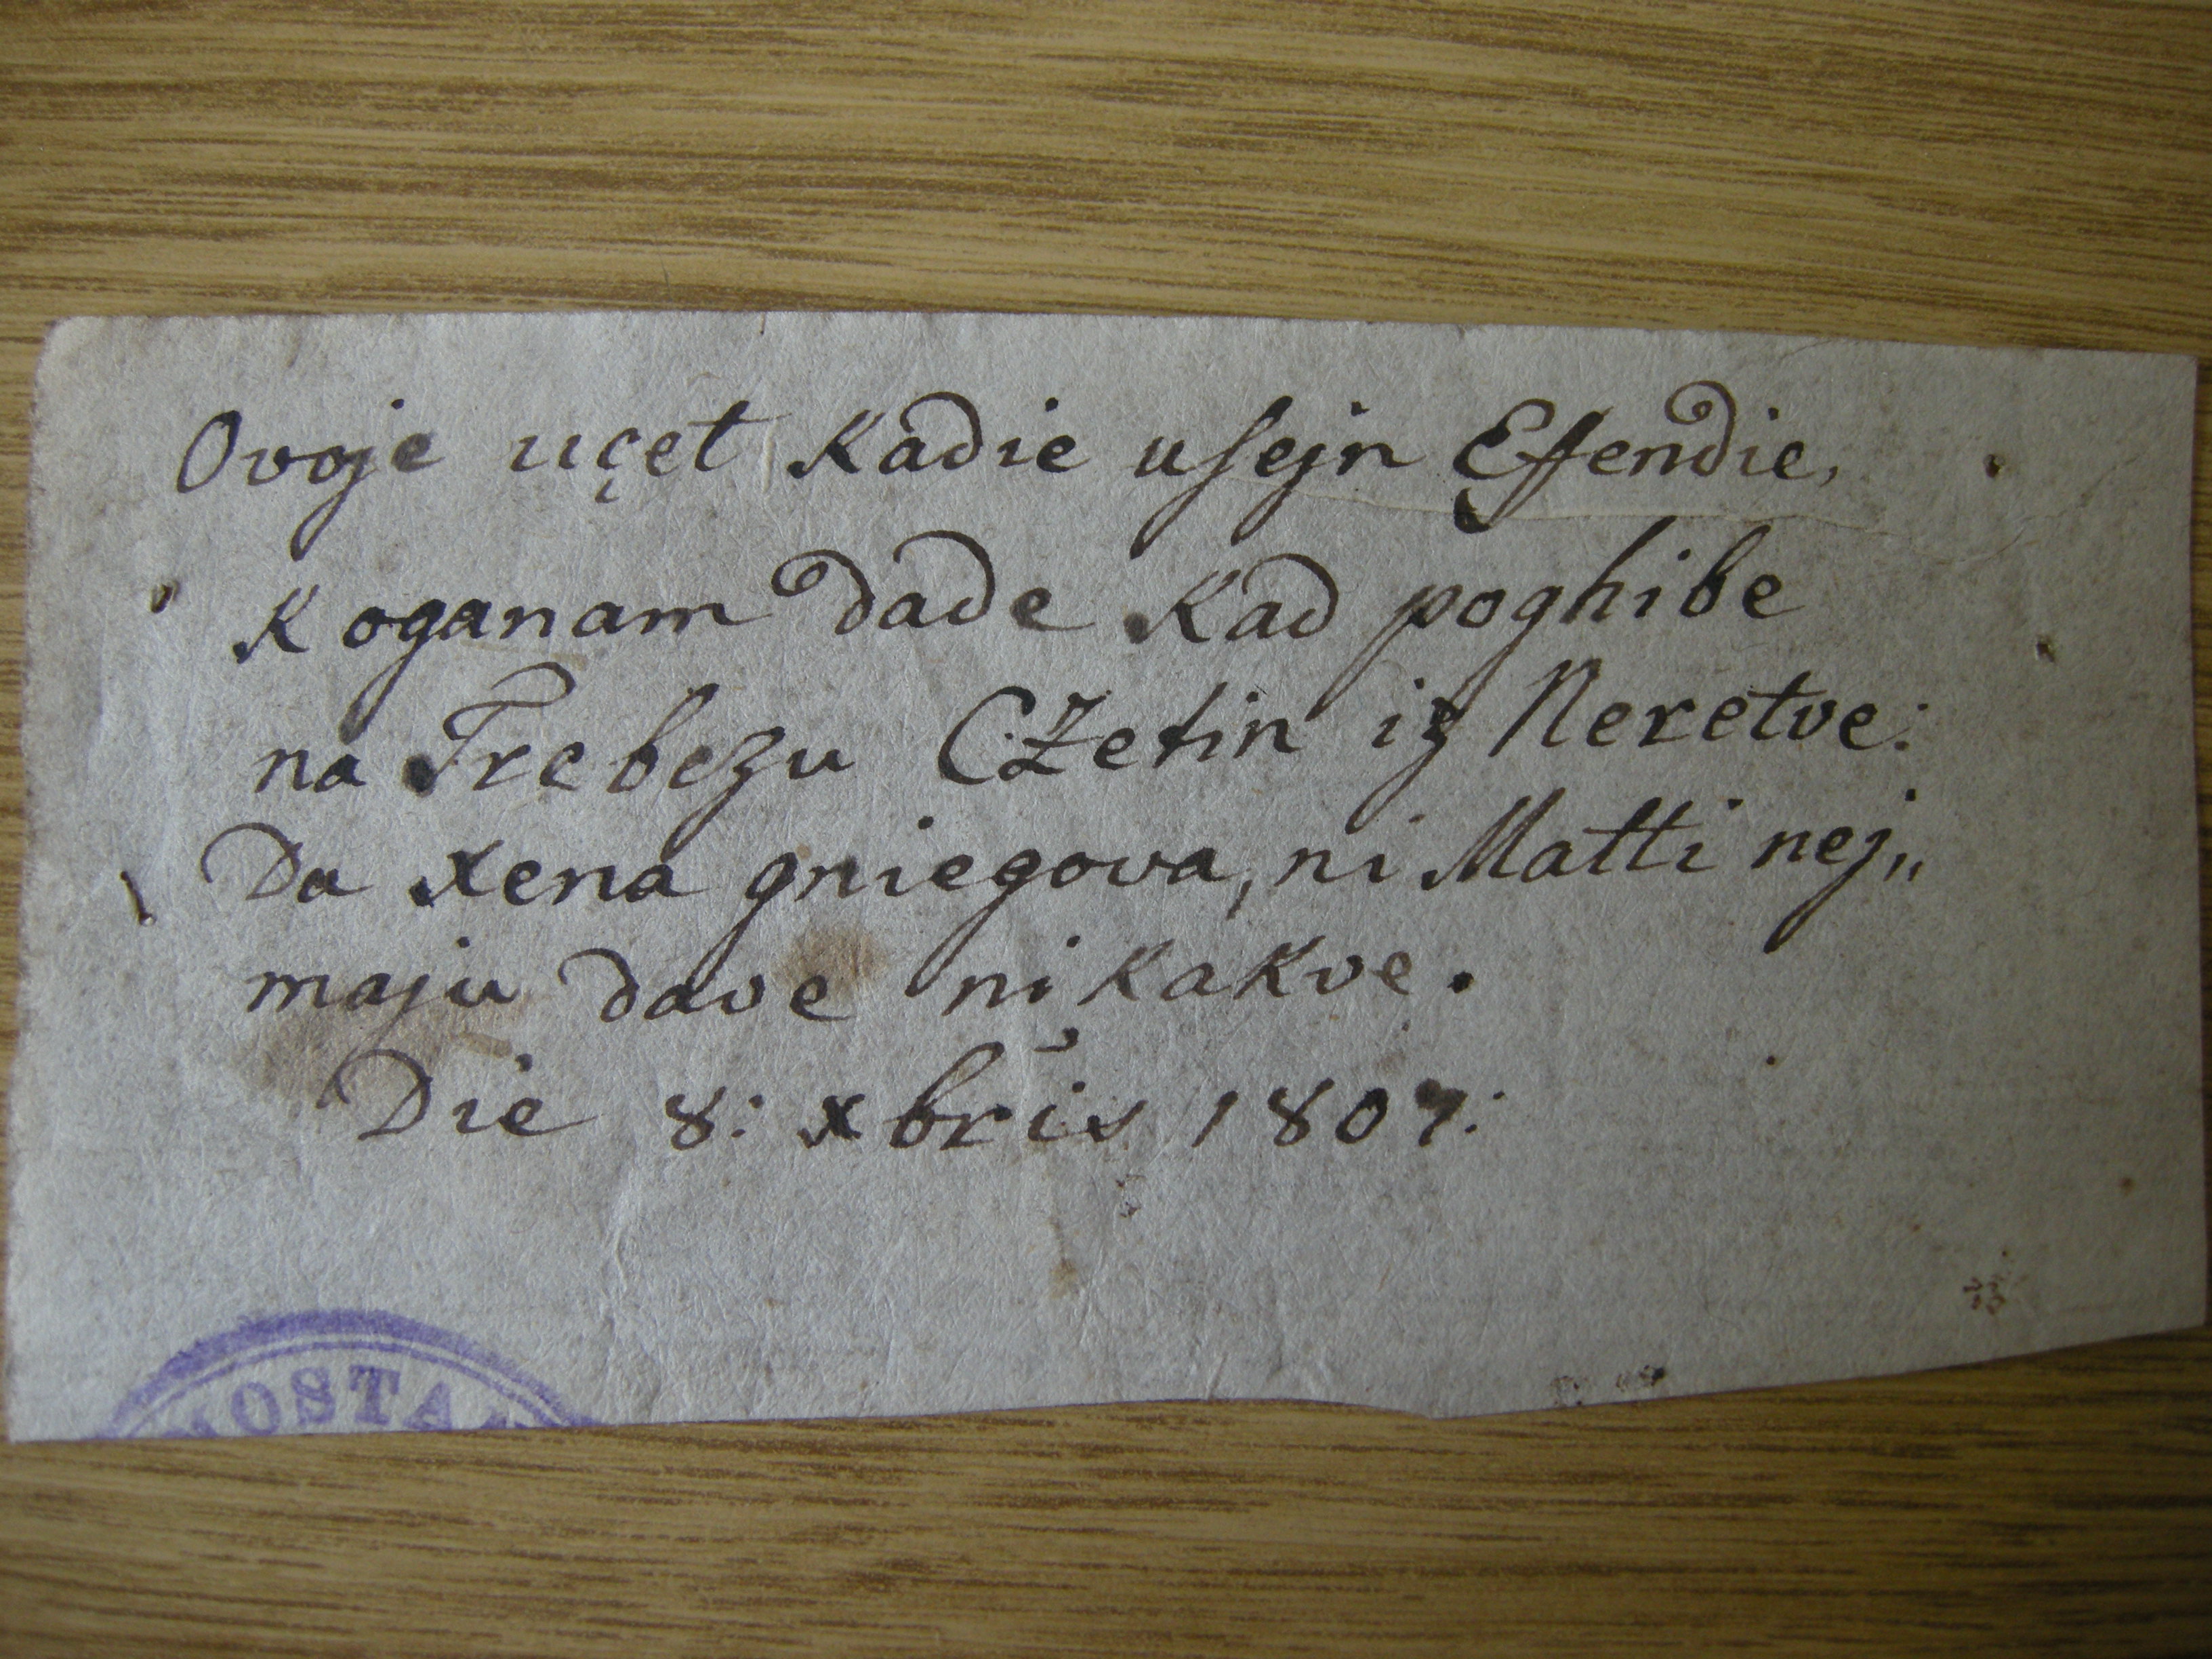 Ovoje uçet Kadie usejn Effendie,
Koganam dade Kad poghibe
na Trebezu CZetin iz Neretve:
Da xena gniegova, ni Matti nej„
maju dave nikakve.
Die 8: xbris 1807:
MOSTA